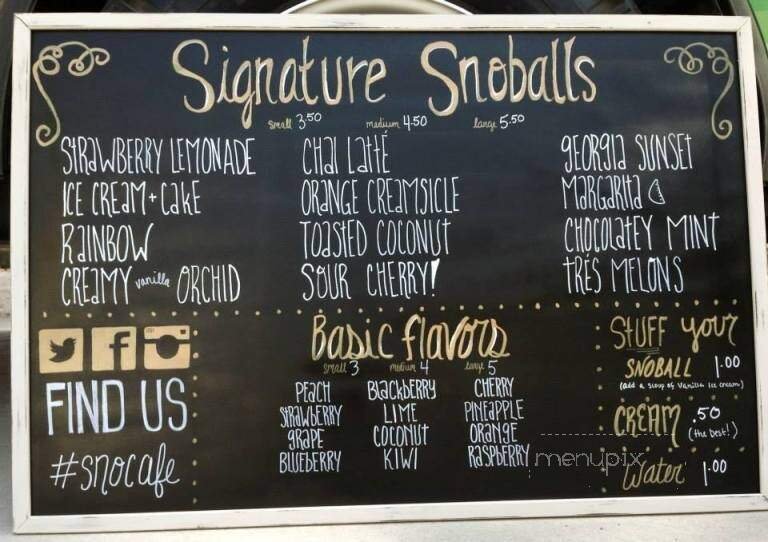 Signature Snoballs
small 3.50 medium 4.50 large 5.50
STRAWBERRY LEMONADE
ICE CREAM + CAKE
RAINBOW
CREAMY vanilla ORCHID
CHAI LATTÉ
ORANGE CREAMSICLE
TOASTED COCONUT
SOUR CHERRY!
GEORGIA SUNSET
MARGARITA
CHOCOLATEY MINT
TRÉS MELONS
FIND US
#snocafe
Basic flavors
small 3 medium 4 large 5
PEACH
STRAWBERRY
GRAPE
BLUEBERRY
BLACKBERRY
LIME
COCONUT
KIWI
CHERRY
PINEAPPLE
ORANGE
RASPBERRY
STUFF your
SNOBALL 1.00
(add a scoop of vanilla ice cream)
CREAM .50
(the best!)
Water 1.00
menupix